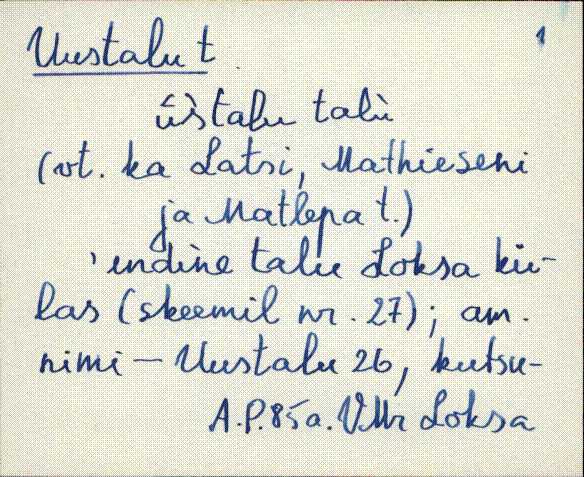 Uustalu t
1
ūstalu talù
(vt. ka Latsi, Mathieseni
ja Matlepa t.)
'endine talu Loksa kü-
las (skeemil nr. 27); am.
nimi – Uustalu 26, kutsu-
A.P.85a. VMr Loksa